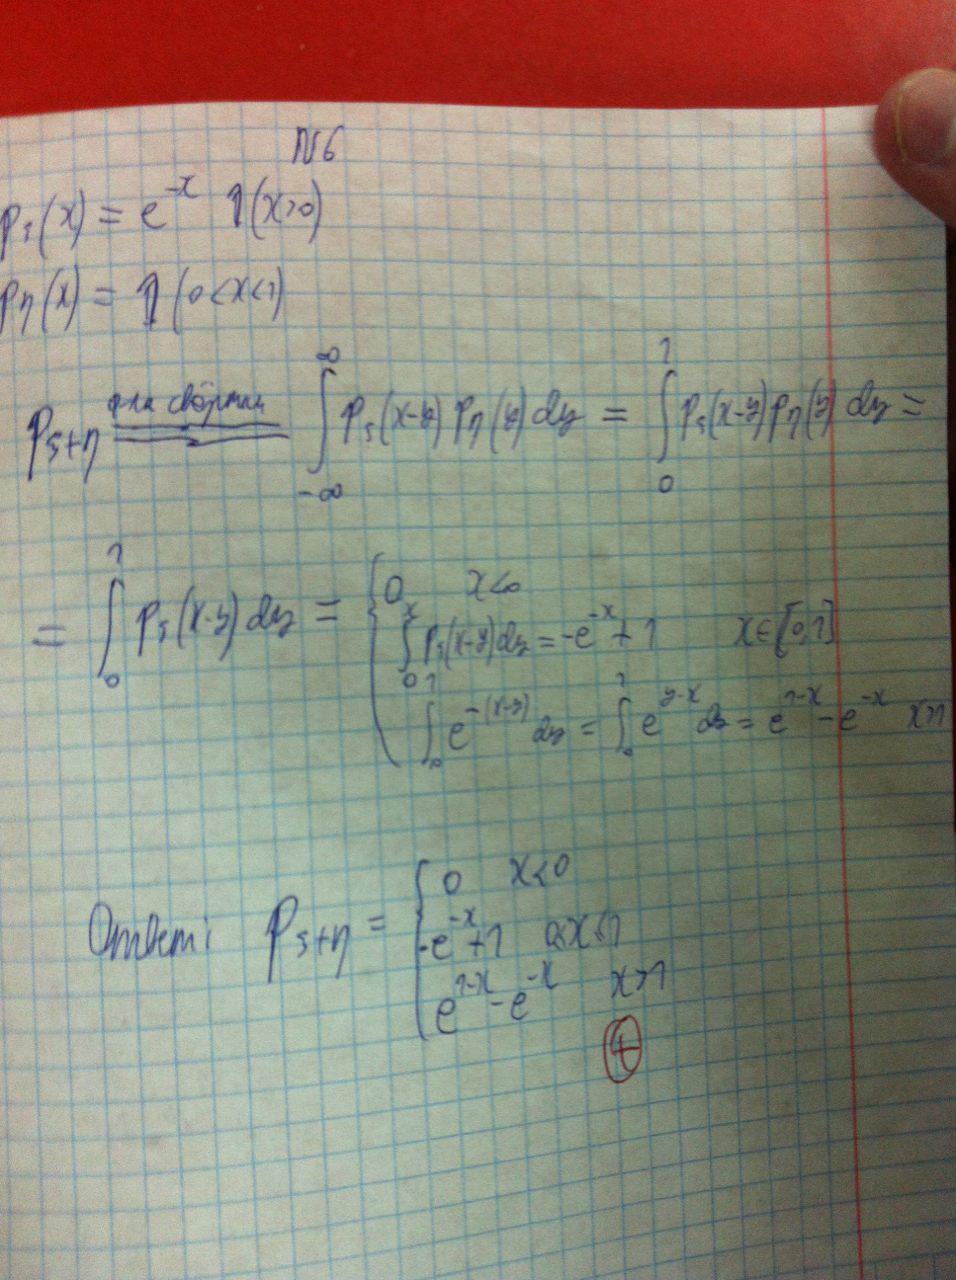 N6
p_ξ(x) = e^{-x} 1(x>0)
p_η(x) = 1(0<x<1)
p_{ξ+η} ф-ла свёртки = ∫_{-∞}^{∞} p_ξ(x-y) p_η(y) dy = ∫_0^1 p_ξ(x-y) p_η(y) dy =
= ∫_0^1 p_ξ(x-y) dy = { 0 x<0
∫_0^x p_ξ(x-y) dy = -e^{-x}+1 x∈[0,1]
∫_0^1 e^{-(x-y)} dy = ∫_0^1 e^{y-x} dy = e^{1-x} - e^{-x} x>1
Ответ: p_{ξ+η} = { 0 x<0
-e^{-x}+1 0<x<1
e^{1-x} - e^{-x} x>1
+